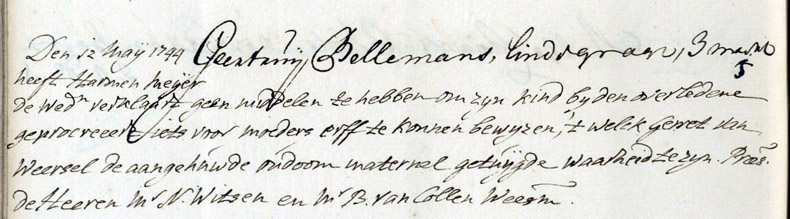 Den 12 Maÿ 1744 Geertruÿ Bellemans, Lindegragt, 3
5
heeft Harmen Meÿer
de Wedr verklaart geen middelen te hebben om zyn kind by den overledene
geprocreeert iets voor moeders erff te konnen bewyzen, 't welck Gerret van
Weersel de aangehuwde oudoom maternel getuijgde waarheid te zyn. Præs.
de Heeren Mr N. Witsen en Mr B. van Collen Weesm.